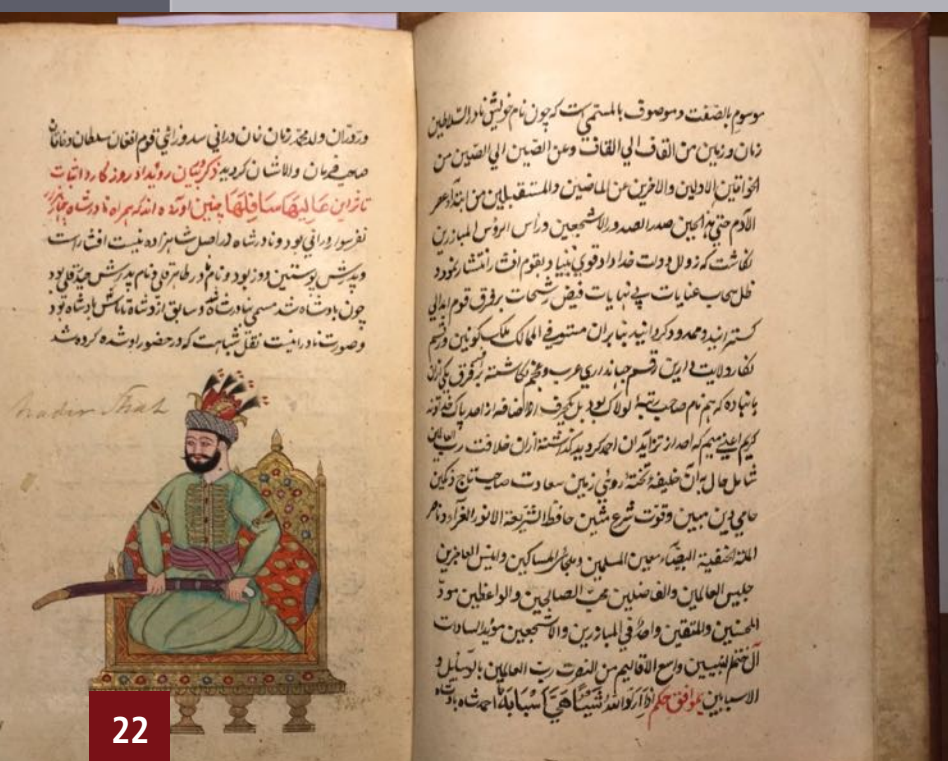 موسوم بالصفت و موصوف بالمستمی است که چون نام خویش نادر السلاطین
زمان و زمین من القاف الی القاف و عن الصین الی الصین من
الخواقین الاولین والاخرین عن الماضیین والمستقبلین من ابتداء عهر
الآدم حتی هذ الحین صدر الصدور الاشجعین و راس الرؤس المبازرین
نکاشت که نزول دولت خداداد قوی بنیاد بقوم افشار انتشار نمود
ظل سحاب عنایات بی نهایات فیض رشحات بر فرق قوم ابدالی
کسترانید و محمود کردانید بنابران مستوفی الممالک ملک کونین
دارین رقم جهانداری عرب و عجم نکاشته بر فرق
که هم نام صاحب رتبهٔ لولاک بود بل یکحرف از اصد پاک
کریم اعنی میم که احد از تزاید آن احمد کردید کذاشته از آن خلافت رب العالمین
شامل حال به آن خلیفهٔ تختهٔ روی زمین سعادت صاحب تاج و نکین
حامی دین مبین و قوت شرع متین حافظ الشریعة الانور الغراء و ناصر
الملة الحنفیة البیضاء معین المسلمین و ملجاء المساکین و انیس العاجزین
جلیس العالمین والفاضلین محب الصالحین والواعظین مود
المحسنین والمتقین و احد فی المبازرین والاشجعین موید السادات
آل ختم النبیین واسع الاقالیم من النصرت رب العالمین بالوسایل و
الاسبابین بموافق حکم اذا اراد الله شیئا هیأ اسبابه احمد شاه بادشاه
و زمان خان درانی سدوزائی قوم افغان سلطان
صاحب فرمان والاشان کردید ذکر بیان رویداد روزکار و اثبات
تاثر این عالیها سافلها چنین آورده اند که همراه نادرشاه
نفر سوار و رانی بود و نادرشاه در اصل شاهزاده نیست افشار است
و پدرش پوستین دوز بود و نام و نام پدرش
چون بادشاه شد مسمی بنادرشاه و سابق از
و صورت نادر اینست نقل شباهت که در حضور او شده کرده شد
Nadir Shah
22